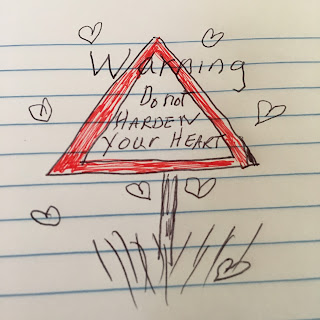 Warning
Do not
HARDEN
Your HEART